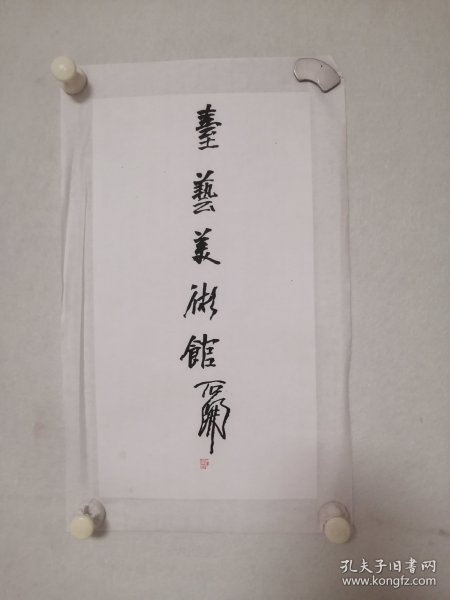 臺藝美術館
石開
孔夫子旧书网
www.kongfz.com